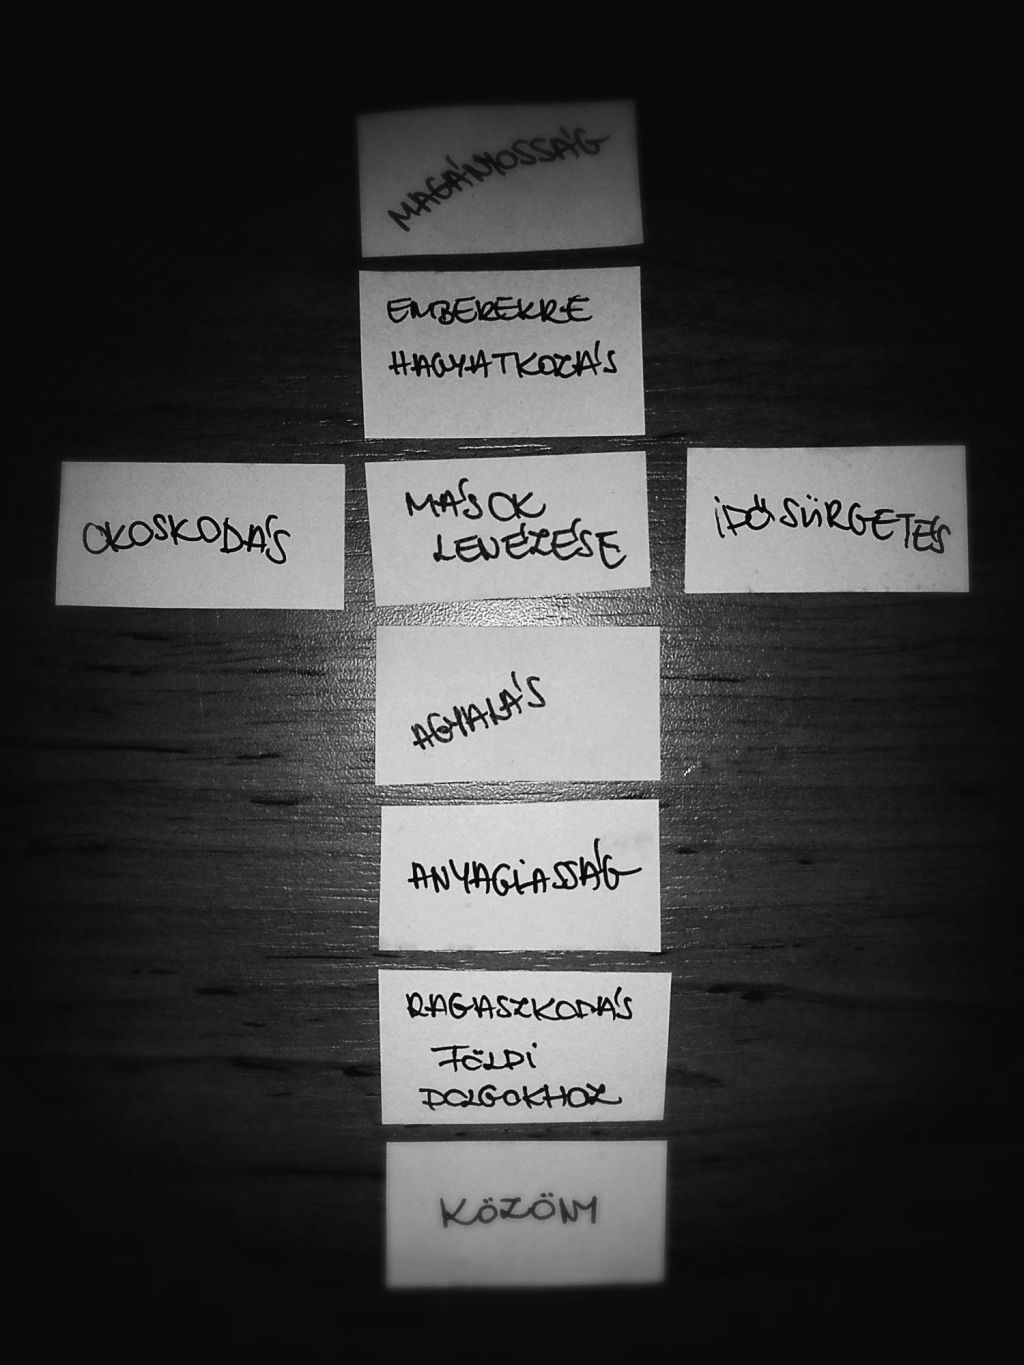 MAGÁNYOSSÁG
EMBEREKRE
HAGYATKOZÁS
OKOSKODÁS
MÁSOK
LENÉZÉSE
IDŐSÜRGETÉS
AGYALÁS
ANYAGIASSÁG
RAGASZKODÁS
FÖLDI
DOLGOKHOZ
KÖZÖNY